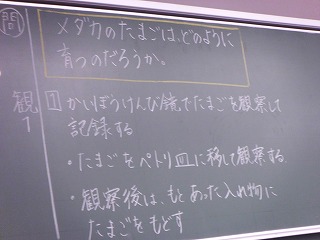 問
メダカのたまごは、どのように
育つのだろうか。
観1
1 かいぼうけんび鏡でたまごを観察して
記録する
・たまごをペトリ皿に移して観察する
・観察後は、もとあった入れ物に
たまごをもどす